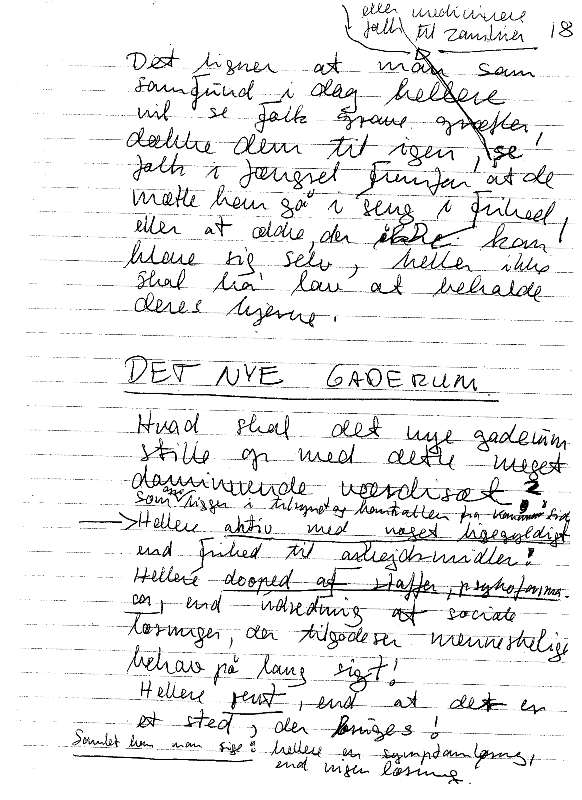 eller medicinere
folk til zombier
18
Det ligner at man som
samfund i dag hellere
vil se folk grave grøfter,
dække dem til igen, se
folk i fængsel fremfor at de
måtte kom gå i seng i frihed,
eller at ældre, der ikke kan
klare sig selv, heller ikke
skal ha' lov at beholde
deres hjerne.
DET NYE GADERUM
Hvad skal det nye gaderum
stille op med dette meget
dominerende værdisæt?
som ligger i tilsynet og kontrakten fra side
Hellere aktiv med noget ligegyldigt
end frihed til arbejdsmidler!
Hellere dooped af stoffer, psykofarma-
ca, end udredning af sociale
løsninger, der tilgodeser menneskelige
behov på lang sigt!
Hellere rent, end at det er
et sted, der bruges!
Samlet kan man sige: hellere en symptomløsning,
end ingen løsning.